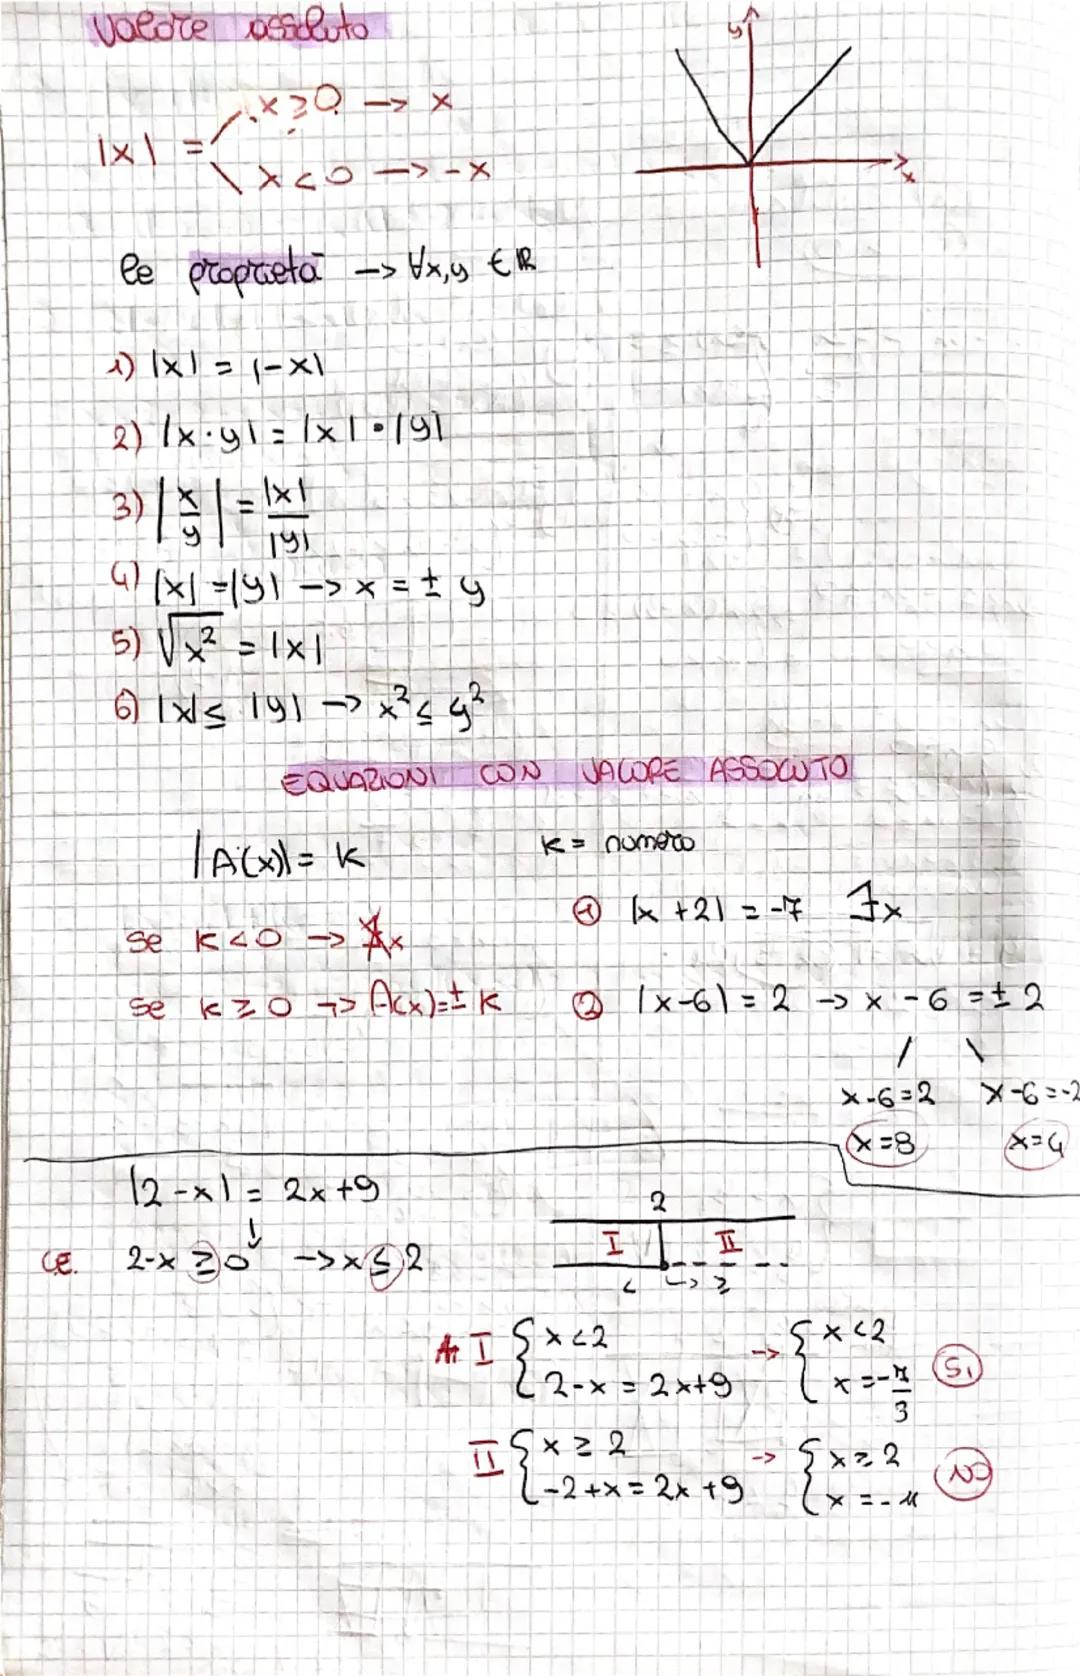 Valore assoluto
y
x
|x| = x ≥ 0 → x
x < 0 → -x
le proprietà → ∀x,y ∈ ℝ
1) |x| = |-x|
2) |x·y| = |x|·|y|
3) |x/y| = |x|/|y|
4) |x| = |y| → x = ± y
5) √x² = |x|
6) |x| ≤ |y| → x² ≤ y²
EQUAZIONI CON VALORE ASSOLUTO
|A(x)| = K K = numero
① |x+2| = -7 ∃x
se K < 0 → ∄x
se K ≥ 0 → A(x) = ± K ② |x-6| = 2 → x-6 = ± 2
x-6=2 x-6=-2
x=8 x=4
|2-x| = 2x+9
2
C.E. 2-x ≥ 0 → x ≤ 2 I II
< → ≥
I { x < 2 → { x < 2
2-x = 2x+9 x = -7/3 SI
II { x ≥ 2 → { x ≥ 2
-2+x = 2x+9 x = -11 NO